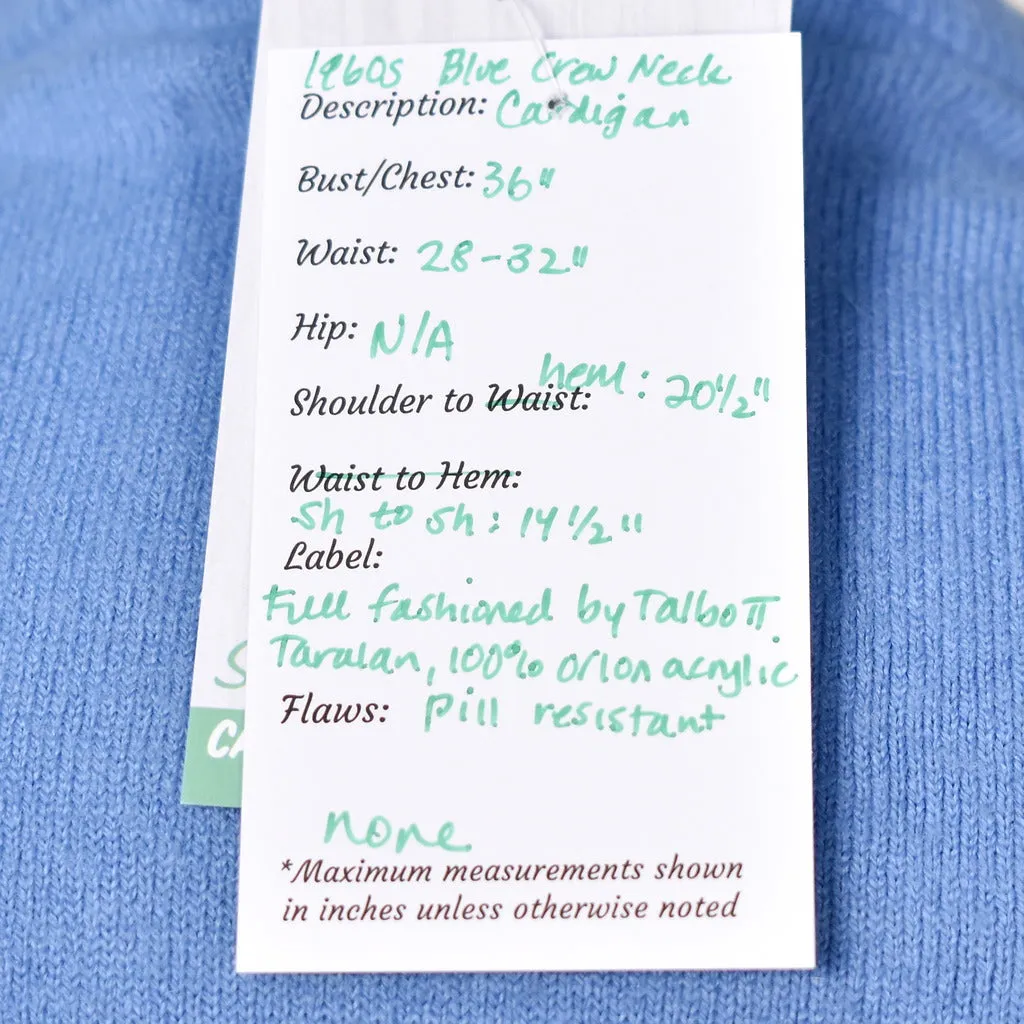 1960s Blue Crew Neck
Description: Cardigan
Bust/Chest: 36"
Waist: 28-32"
Hip: N/A
hem: 20 1/2"
Shoulder to Waist:
Waist to Hem:
Sh to sh: 14 1/2"
Label:
Full fashioned by Talbott
Taralan, 100% orlon acrylic
Flaws: Pill resistant
none
*Maximum measurements shown
in inches unless otherwise noted